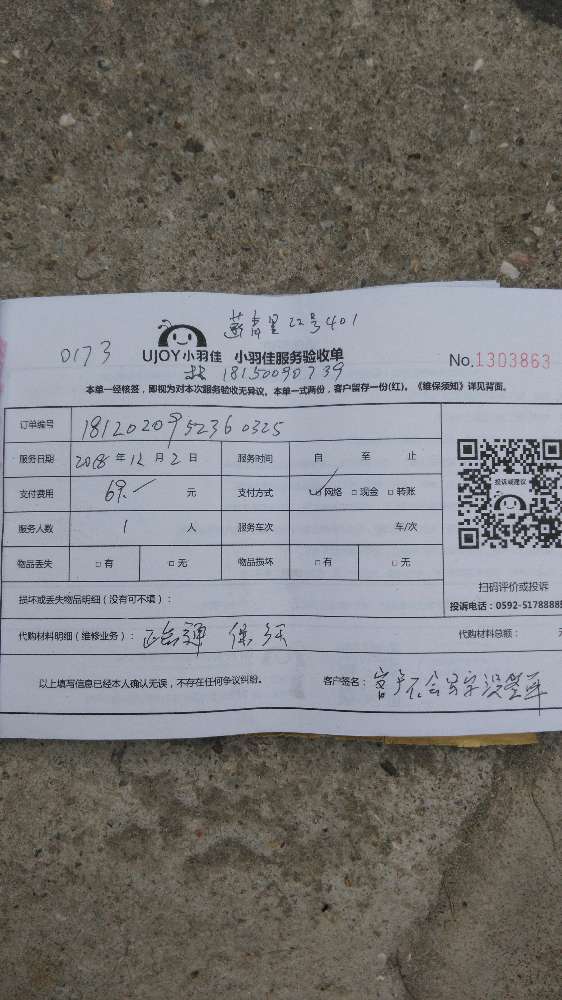 22号401
0173 UJOY小羽佳 小羽佳服务验收单 No.1303863
林 18150090739
本单一经核签，即视为对本次服务验收无异议。本单一式两份，客户留存一份(红)。《维保须知》详见背面。
订单编号
服务日期 2018年12月2日 服务时间 自 至 止
支付费用 69 元 支付方式 ☑网络 □现金 □转账
服务人数 1 人 服务车次 车/次
物品丢失 □有 □无 物品损坏 □有 □无
投诉或建议
扫码评价或投诉
投诉电话：0592-5178888
损坏或丢失物品明细（没有可不填）：
代购材料明细（维修业务）： 代购材料总额：
以上填写信息已经本人确认无误，不存在任何争议纠纷。 客户签名：客户不会写字没签单